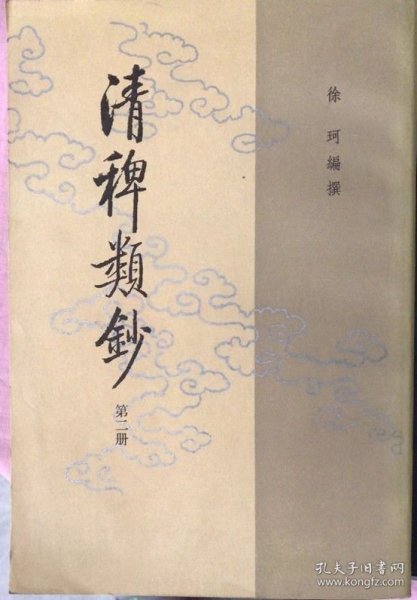 徐珂編撰
清稗類鈔
第二册
孔夫子旧书网
https://www.kongfz.com